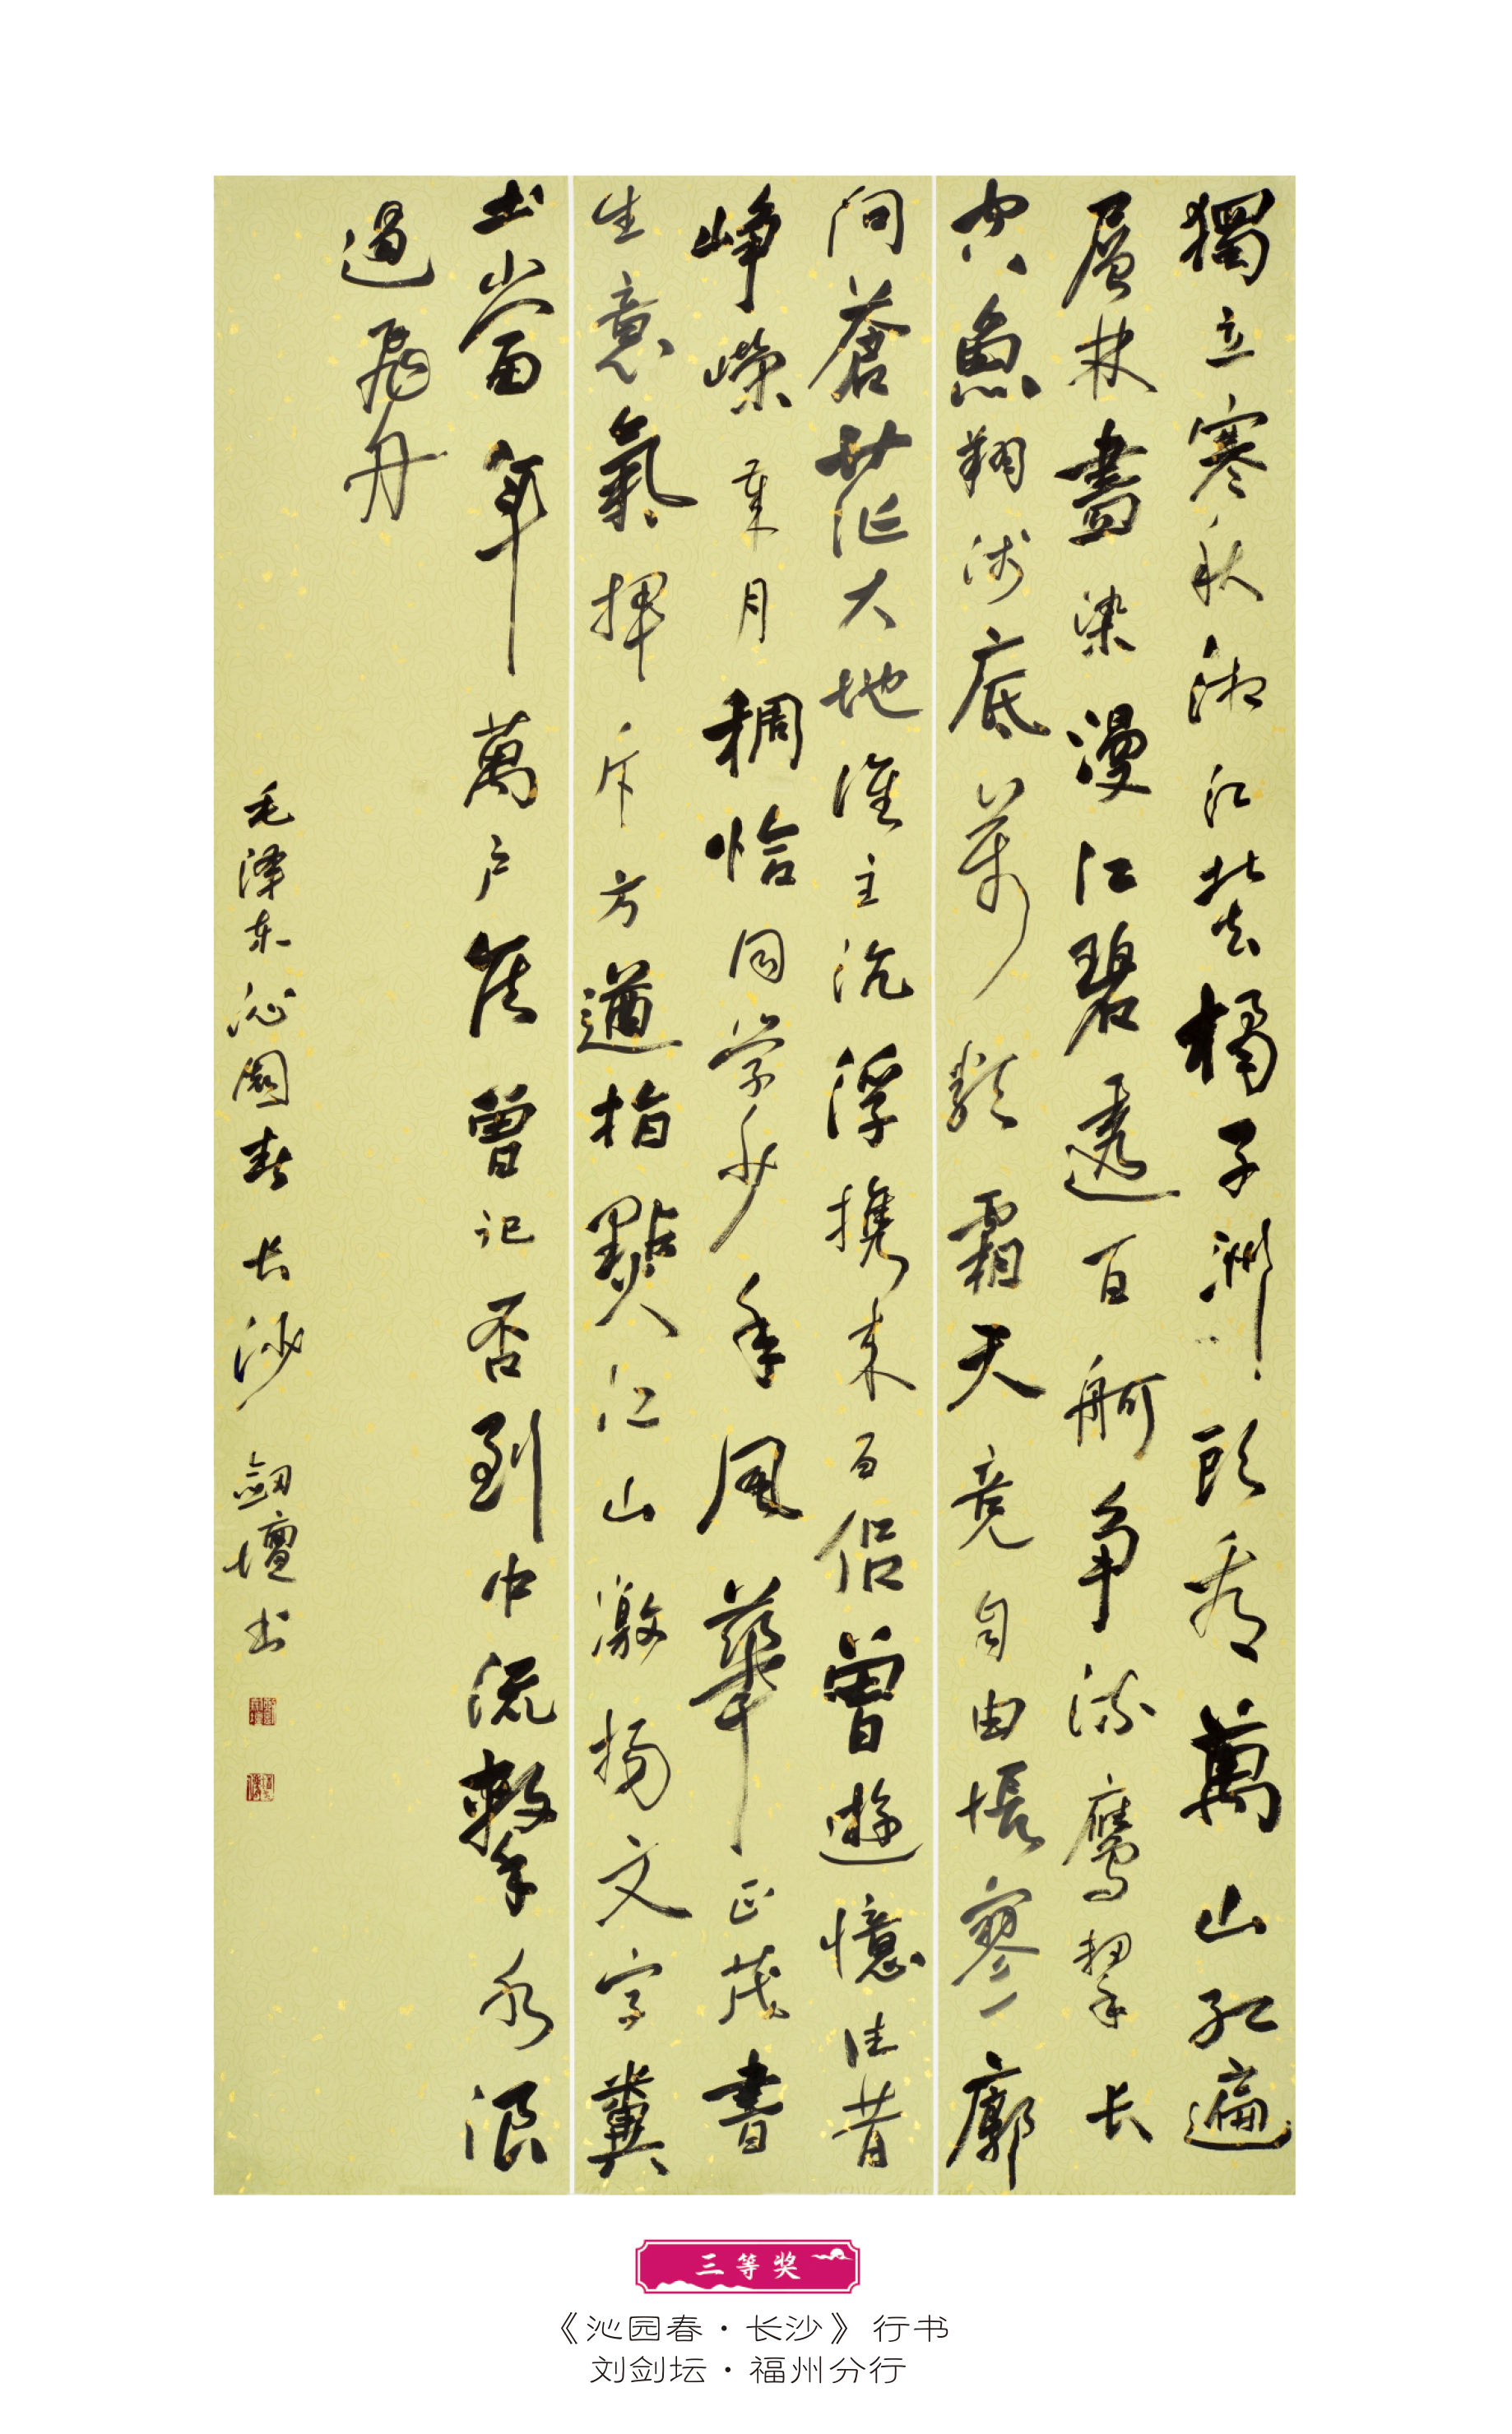 獨立寒秋湘江北去橘子洲頭看萬山红遍
層林盡染漫江碧透百舸争流鷹擊长
空魚翔浅底萬類霜天竞自由悵寥廓
问蒼茫大地誰主沉浮携来百侣曾遊憶往昔
峥嶸歲月稠恰同学少年风華正茂書
生意氣揮斥方遒指點江山激扬文字糞
土當年萬户侯曾记否到中流擊水浪
遏飛舟
毛泽东沁園春 长沙 劍壇书
三等奖
《沁园春·长沙》行书
刘剑坛·福州分行